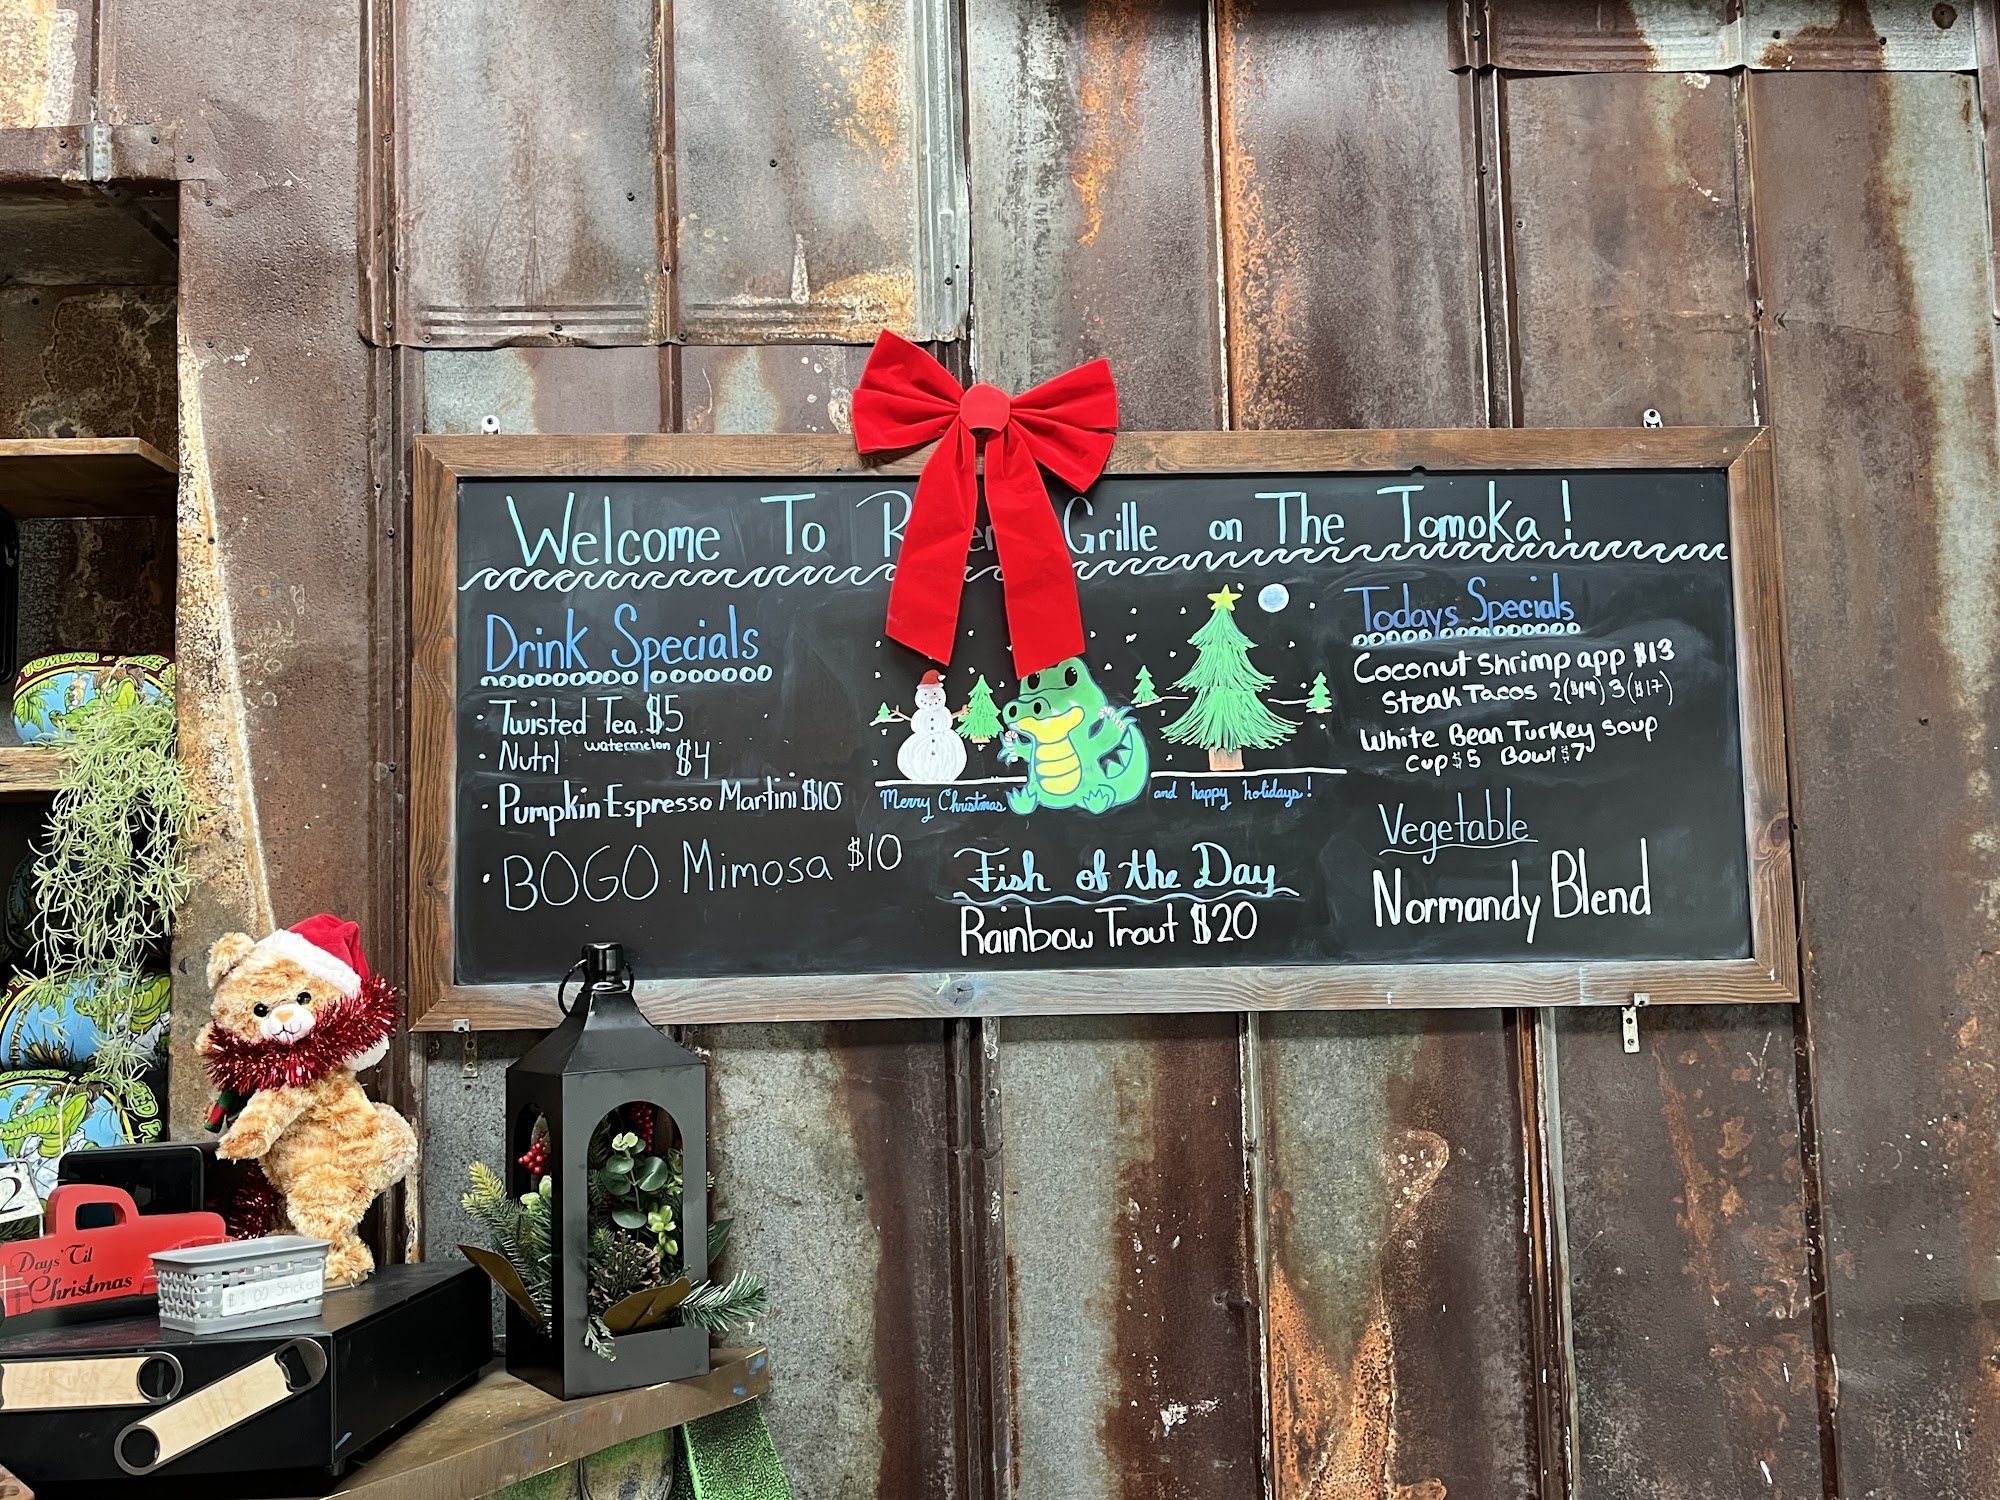 Welcome To Grille on The Tomoka!
Drink Specials
• Twisted Tea $5
• Nutrl watermelon $4
• Pumpkin Espresso Martini $10
• BOGO Mimosa $10
Merry Christmas and happy holidays!
Fish of the Day
Rainbow Trout $20
Todays Specials
Coconut Shrimp app $13
Steak Tacos 2($14) 3($17)
White Bean Turkey Soup
Cup $5 Bowl $7
Vegetable
Normandy Blend
TOMOKA
2
Days 'Til
Christmas
$1.00 Stickers